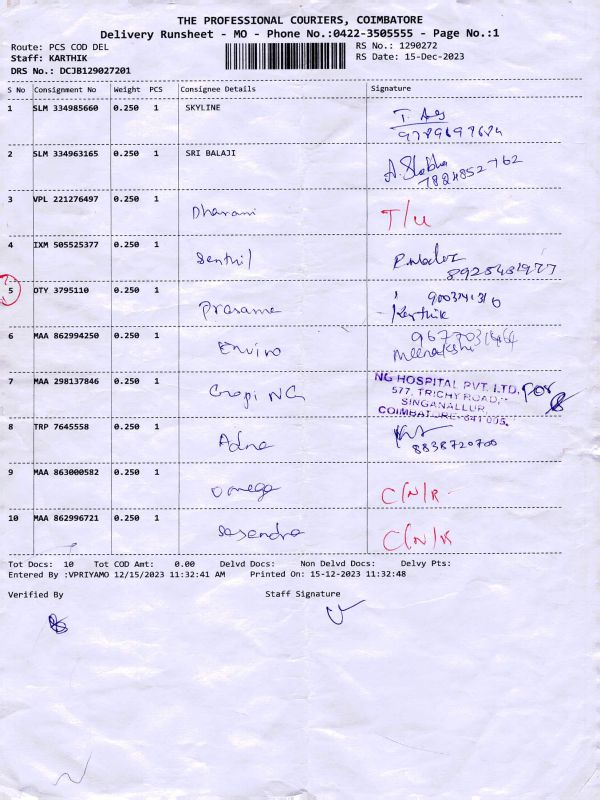 THE PROFESSIONAL COURIERS, COIMBATORE
Delivery Runsheet - MO - Phone No.:0422-3505555 - Page No.:1
Route: PCS COD DEL
Staff: KARTHIK
DRS No.: DCJB129027201
RS No.: 1290272
RS Date: 15-Dec-2023
S No Consignment No Weight PCS Consignee Details Signature
1 SLM 334985660 0.250 1 SKYLINE
2 SLM 334963165 0.250 1 SRI BALAJI
A. Shobha
7824852762
3 VPL 221276497 0.250 1 Dharani T/U
4 IXM 505525377 0.250 1 Senthil
5 DTY 3795110 0.250 1
Karthik
6 MAA 862994250 0.250 1 Enviro
Meenakshi
7 MAA 298137846 0.250 1 Gopi NG
NG HOSPITAL PVT. LTD.
577, TRICHY ROAD,
SINGANALLUR,
COIMBATORE- 641 005.
8 TRP 7645558 0.250 1
8838720700
9 MAA 863000582 0.250 1 Omega C/N/R
10 MAA 862996721 0.250 1 C/N/R
Tot Docs: 10 Tot COD Amt: 0.00 Delvd Docs: Non Delvd Docs: Delvy Pts:
Entered By :VPRIYAMO 12/15/2023 11:32:41 AM Printed On: 15-12-2023 11:32:48
Verified By Staff Signature